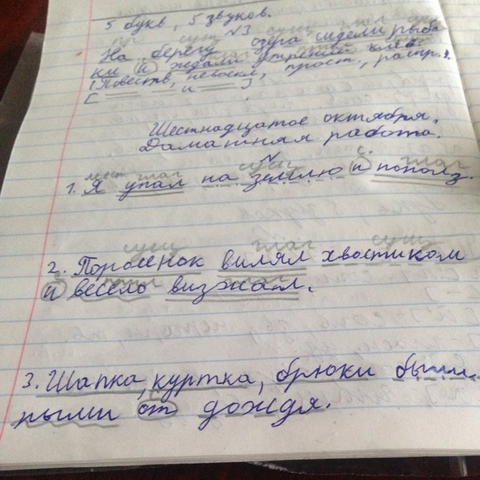 5 букв, 5 звуков.
N3
сущ
На берегу пруда сидели рыба
ки и ждали утренний клёв.
(Повеств, невоскл, прост, распр.).
Шестнадцатое октября.
Даматняя работа.
N
мест глаг сущ с. глаг
1. Я упал на землю и пополз.
сущ глаг сущ
2. Поросёнок вилял хвостиком
и весело визжал.
3. Шапка, куртка, брюки были
рыми от дождя.